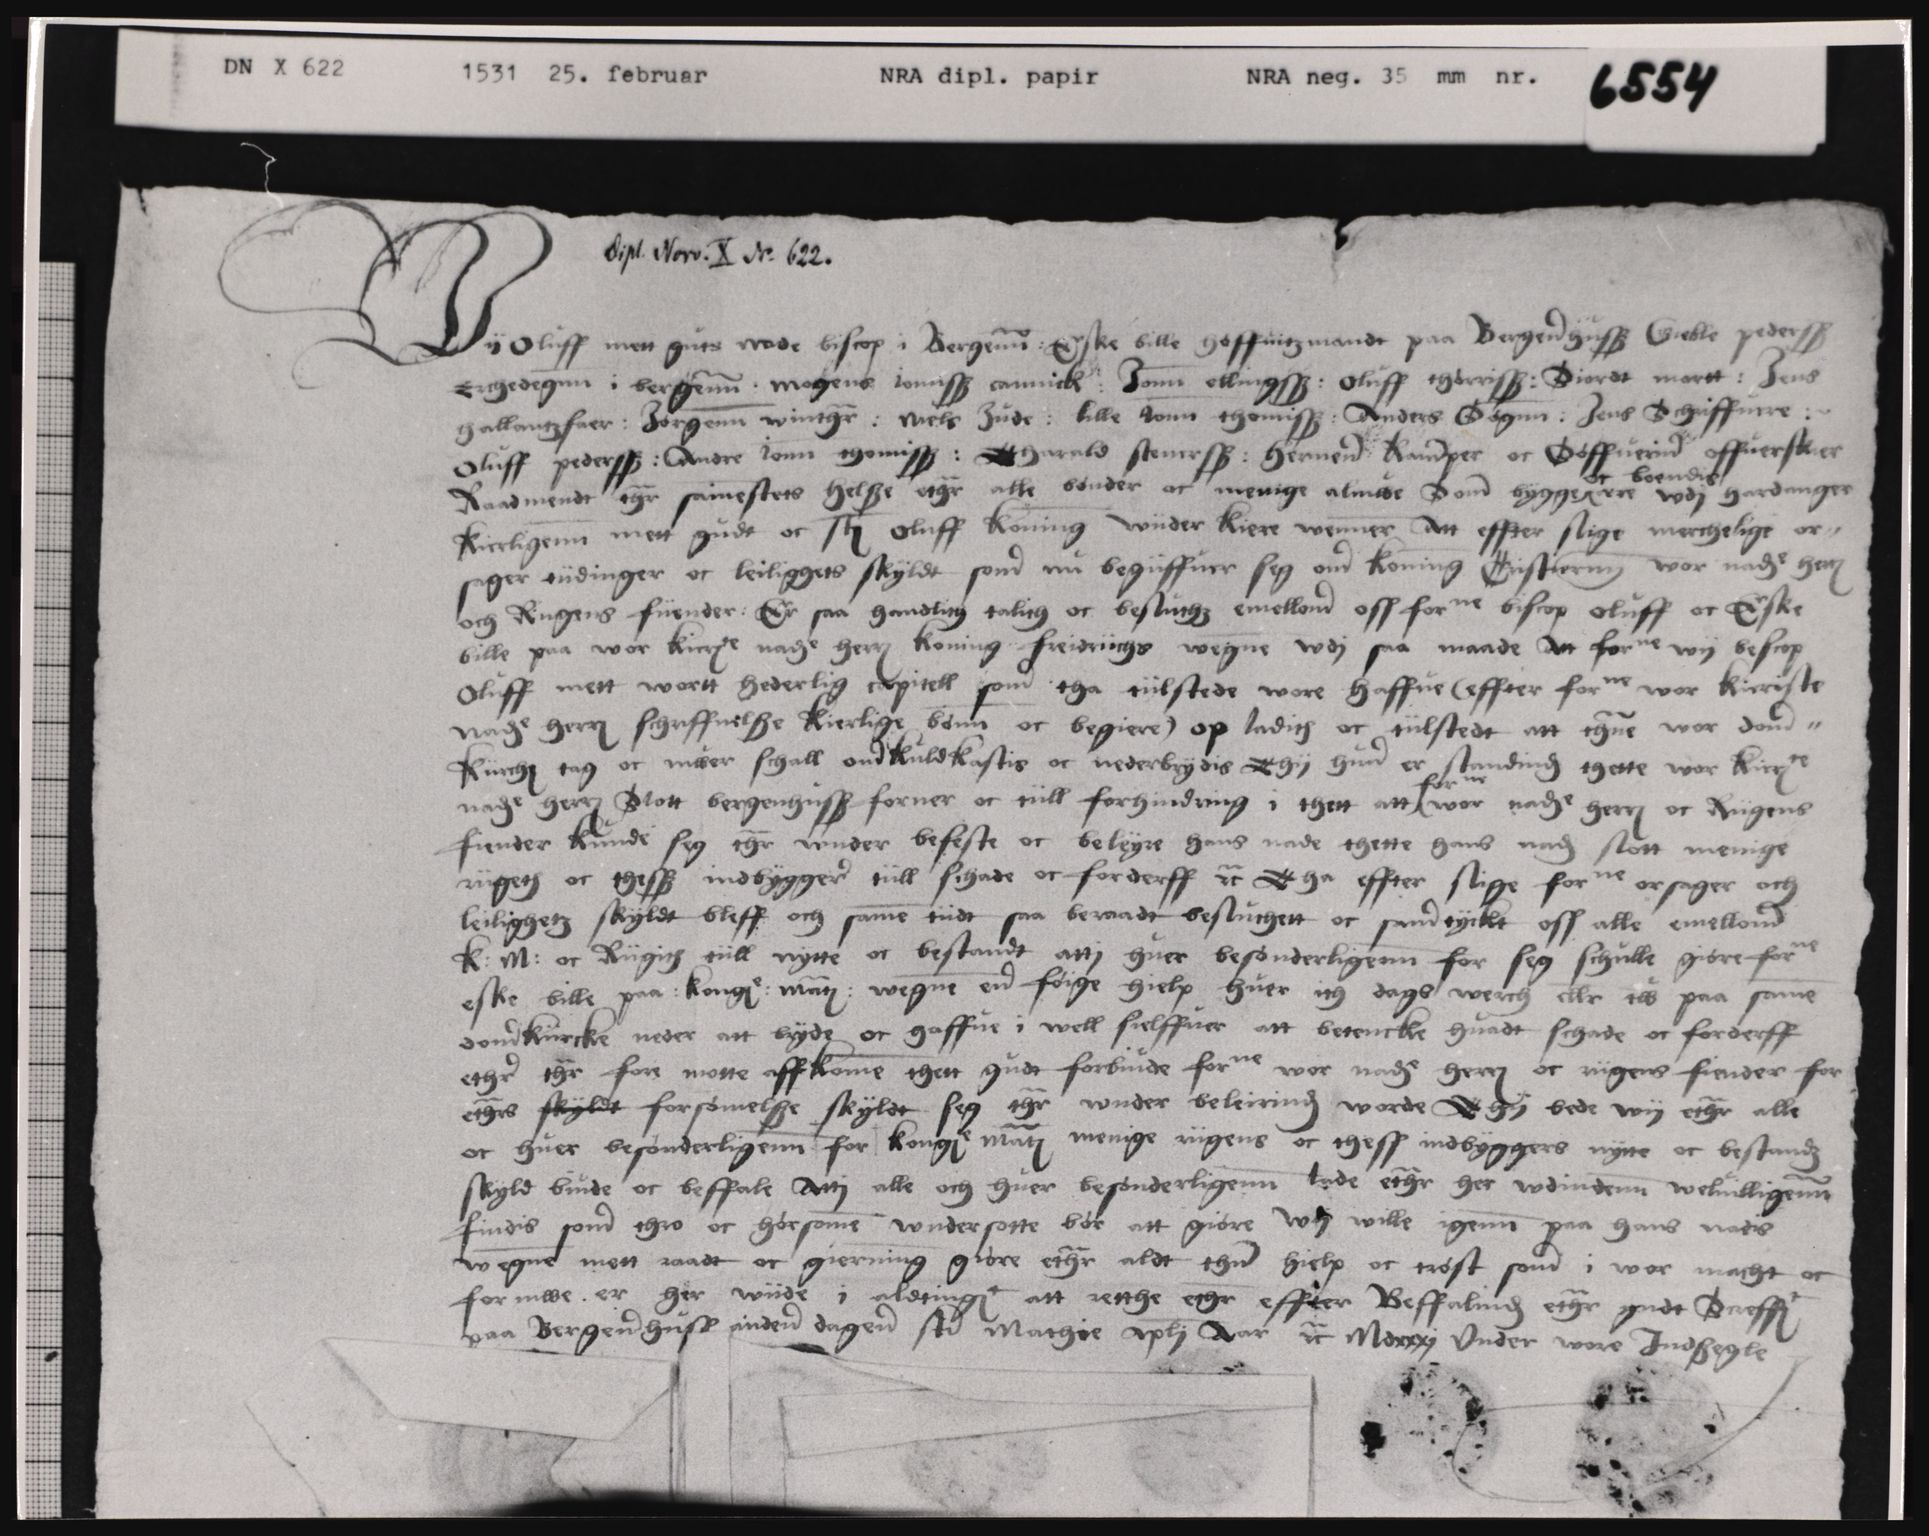 DN X 622 1531 25. februar NRA dipl. papir NRA neg. 35 mm nr. 6554
dipl. Norv. X Nr. 622.
Wij Oluff mett guts nade biscop i Bergenn: Eske bille höffuitzmandt paa Bergenhüssz Gieble pederssz
erchedegenn i bergenn. mogens ionssz cannick: Jonn ellingssz: oluff thorrissz: Siordt mortt: Jens
hallantzfaer: Jörgenn winther: niels Jude: lille Jonn thomissz: Anders Sögnn: Jens Schriffuere:
Oluff pederssz: Andre Jonn thomissz: Harald stenerssz: hermen Kamper oc Söffuerin offuerskier
Raadmendt ther samestets helsze ether alle bönder oc menige almwe Som bygge oc boendis ere wdj hardanger
kierligenn mett gudt oc sti Oluff köning wnder kiere wenner Att effter slige merchelige or-
sager tiidinger oc leiliggets skyldt som nu begiiffuer seg om köning Cristiernn wor nade herris
och Riigens fiiender. Er saa handlith talith oc besluthz emellom oss forne biscop oluff oc Eske
bille paa wor kierste nade herris koning freidriichs wegne wdj saa maade Att forne wij bescop
Oluff mett wortt hederlig capitell som tha tiilstede wore haffue (effter forne wor kieriste
nade herris schriffuelsze kierlige bönn oc begiere) op ladith oc tiilstedt att thenne wor dom-
kiirchis tag oc mwer schall omkuldkastis oc nederbrydis Thij hun er standindis thette wor kierste
nade herris Slott bergenhussz forner oc tiill forhindring i thett att forne wor nade herris oc Riigens
fiender kunde seg ther wnder befeste oc beleyre hans nade thette hans nadis slott menige
riigeth oc thessz indbyggere tiill schade oc forderff etc Tha effter slige forne orsager och
leilighetz skyldt bleff och same tiidt saa beraadt besluthett oc samtyckt oss alle emellom
K: M: oc Riigith tiill nytte oc bestandt attj huer besönderligenn for seg schulle giöre forne
eske bille paa: konge: matz: wegne en föige hielp huer ith dags werch eller tw paa same
domkiircke neder att bryde oc haffue i well sielffuer att betencke huadt schade oc forderff
ether ther fore motte affkome thett gudt forbiude forne wor nade herris oc riigens fiender for
ethers skyldt forsömelsze skyldt seg ther wnder beleirindis worde Thij bede wij ether alle
oc huer besönderligenn for konge matz menige riigens oc thess indbyggers nytte oc bestandz
skyld biude oc beffale Attj alle och huer besönderligenn lade ether her wdindenn weluilligenn
findis som thro oc hörsome wndersotte bör att giöre Wij wille igenn paa hans nadis
wegne mett raadt oc gierning giöre ether aldt then hielp oc tröst som i wor macht oc
formwe er her wiide i aldtingist att retthe ether effter Beffalindis ether gudt Screffuit
paa Bergenhuss anden dagen sti Mathie aplj Aar etc Mdxxxj Under wore Indszegle